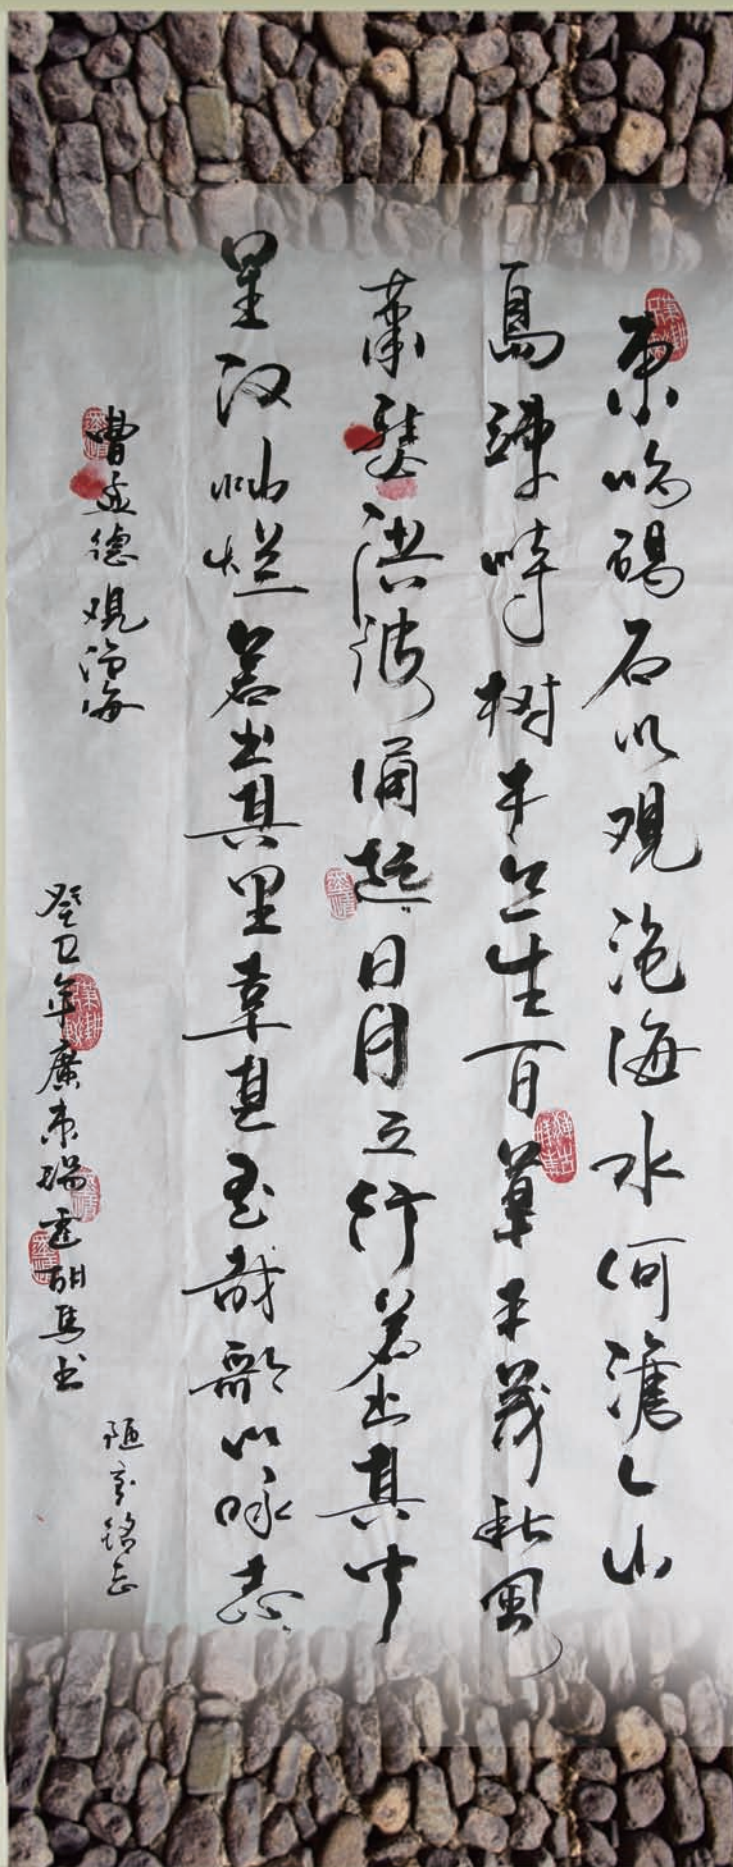 东临碣石以观沧海水何澹々山
島竦峙树木丛生百草丰茂秋風
萧瑟洪波涌起日月之行若出其中
星汉灿烂若出其里幸甚至哉歌以咏志
曹孟德观沧海
癸巳年廣东瑞霆胡馬书
陋室铭